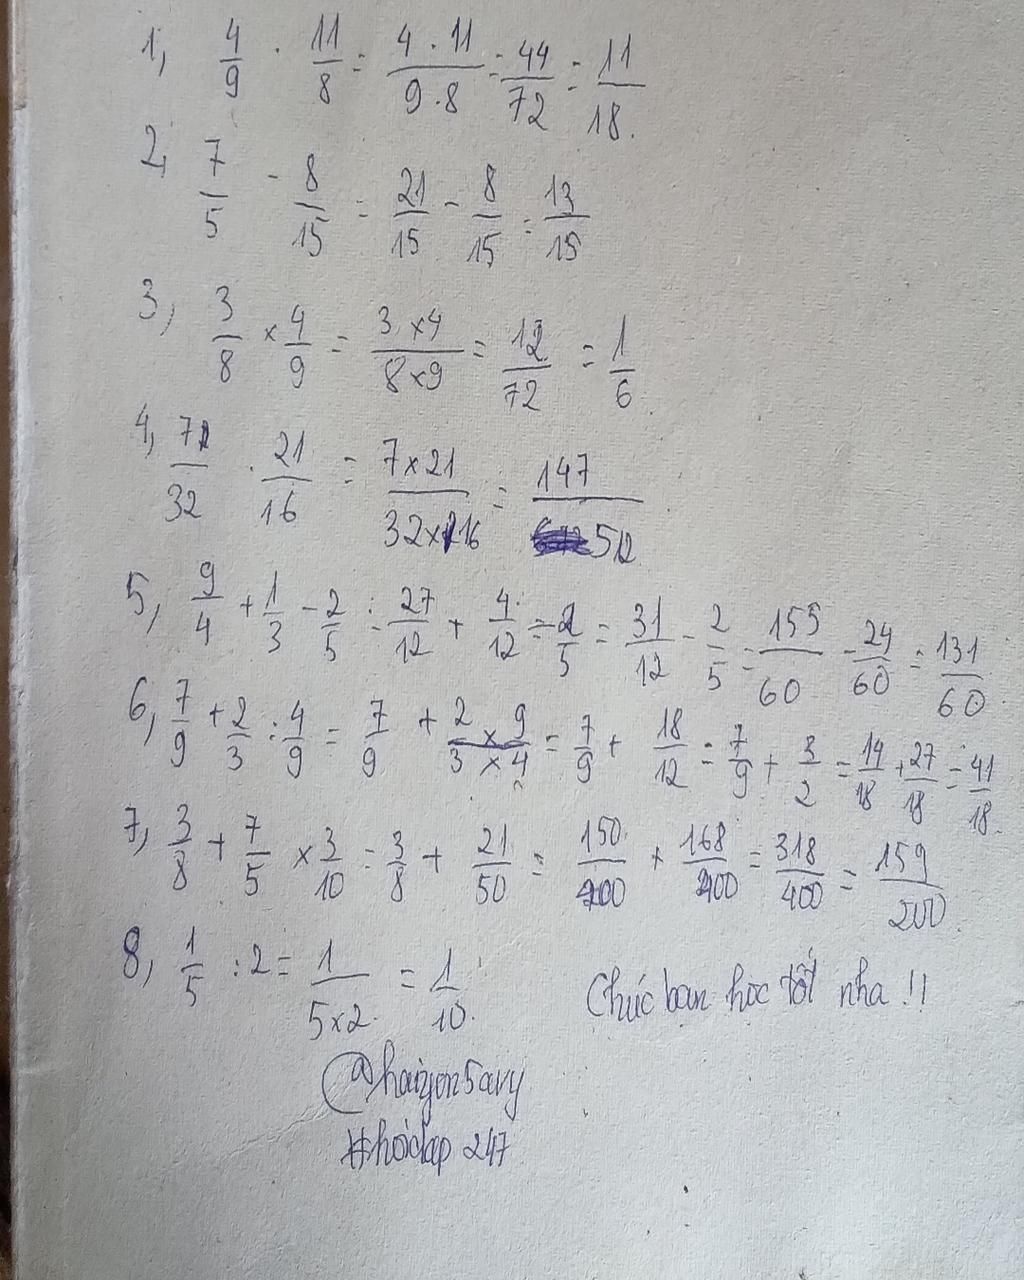 1, 4/9 . 11/8 = 4.11/9.8 = 44/72 = 11/18.
2, 7/5 - 8/15 = 21/15 - 8/15 = 13/15
3, 3/8 x 4/9 = 3x4/8x9 = 12/72 = 1/6
4, 7/32 . 21/16 = 7x21/32x16 = 147/512
5, 9/4 + 1/3 - 2/5 = 27/12 + 4/12 - 2/5 = 31/12 - 2/5 = 155/60 - 24/60 = 131/60
6, 7/9 + 2/3 : 4/9 = 7/9 + 2x9/3x4 = 7/9 + 18/12 = 7/9 + 3/2 = 14/18 + 27/18 = 41/18.
7, 3/8 + 7/5 x 3/10 = 3/8 + 21/50 = 150/400 + 168/400 = 318/400 = 159/200.
8, 1/5 : 2 = 1/5x2 = 1/10.
Chúc bạn học tốt nha !!
#hoidap 247